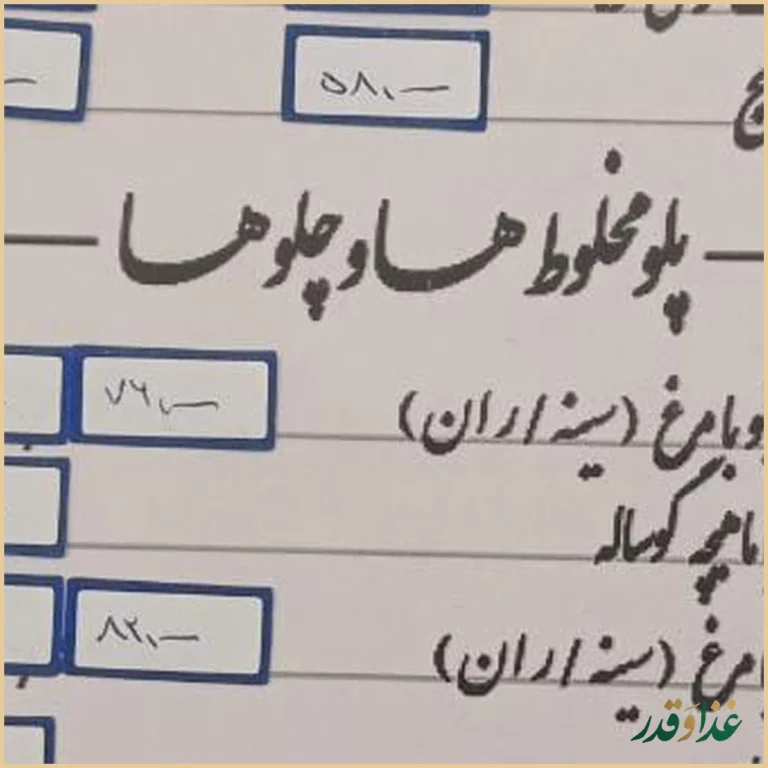 ۵۸,—
پلو مخلوط ها و چلوها
با مرغ (سینه / ران) ۷۶,—
ماهیچه گوساله
مرغ (سینه / ران) ۸۲,—
غذا و قدر